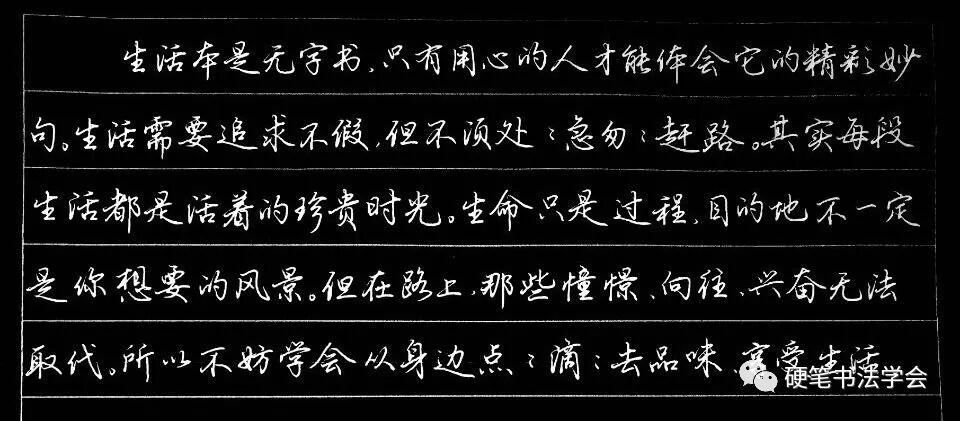 生活本是无字书,只有用心的人才能体会它的精彩妙
句。生活需要追求不假,但不须处〻忽勿〻赶路。其实每段
生活都是活着的珍贵时光。生命只是过程,目的地不一定
是你想要的风景。但在路上,那些憧憬、向往、兴奋无法
取代。所以不妨学会从身边点〻滴〻去品味、享受生活
硬笔书法学会